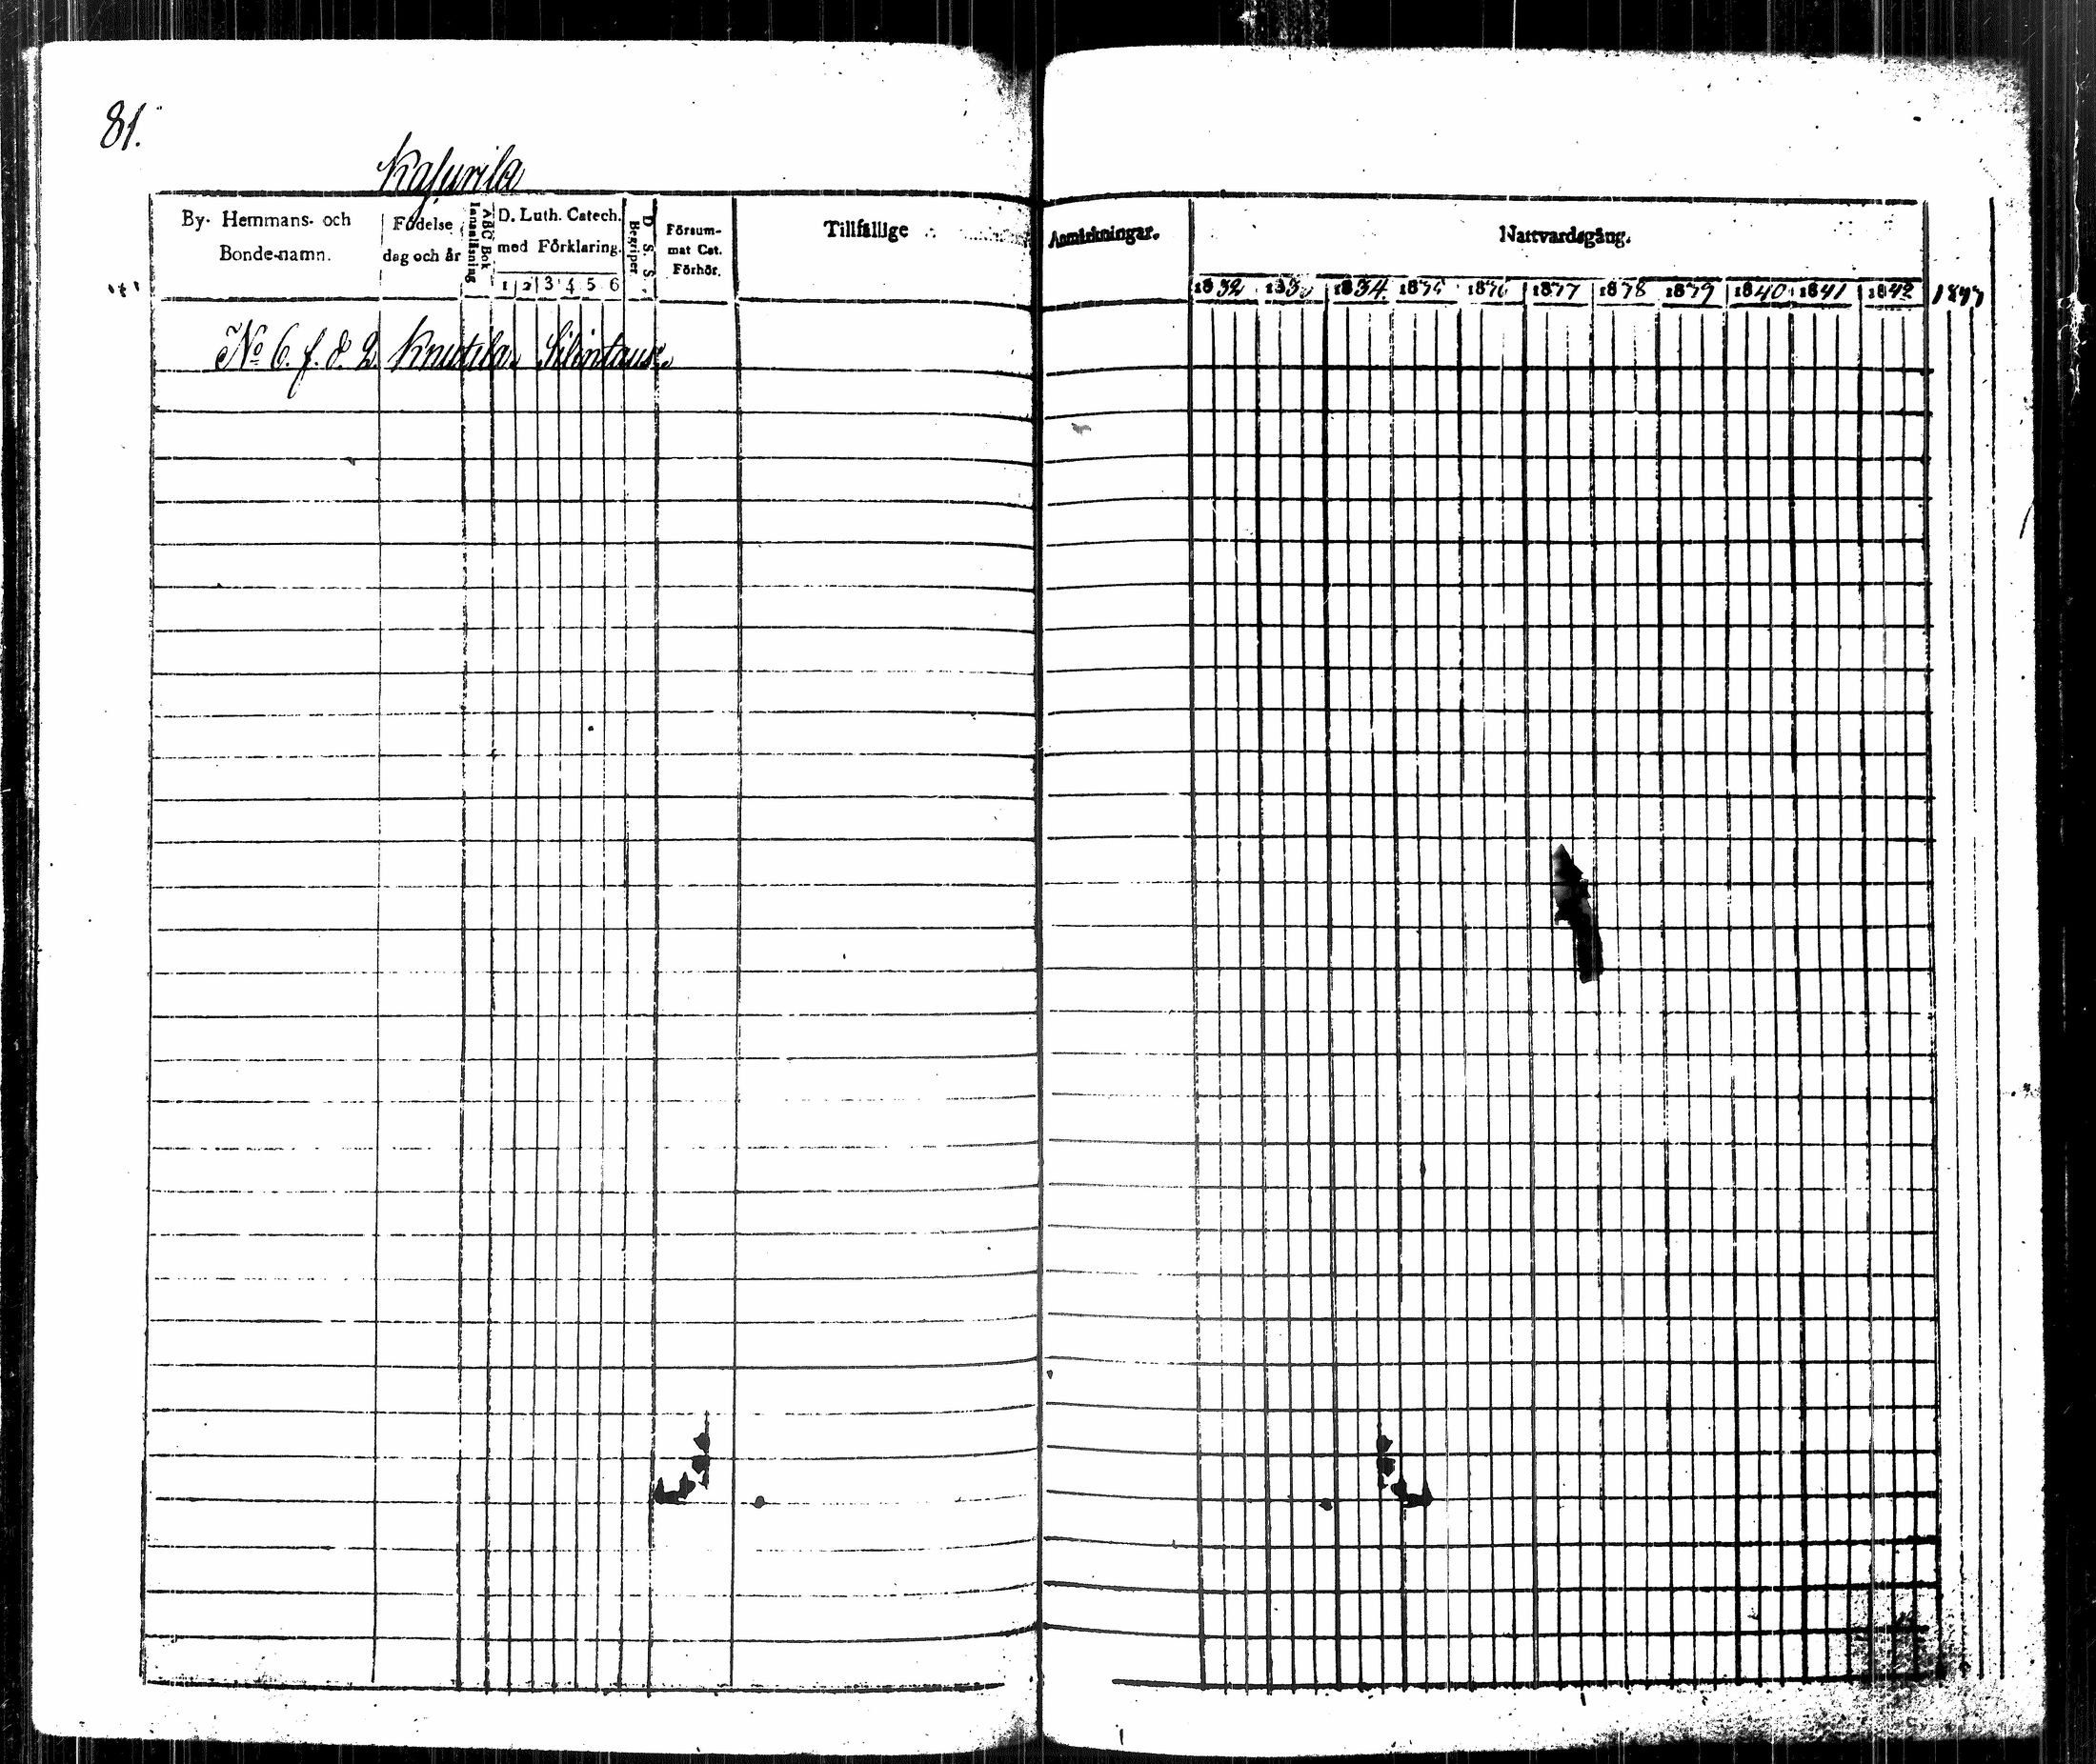 81.
Kajurila
By- Hemmans- och
Bonde-namn.
Födelse
dag och år
Innanläsning
ABC Bok
D. Luth. Catech.
med Förklaring.
1 2 3 4 5 6
D. S. S.
Begriper.
Försum-
mat Cat.
Förhör.
Tillfällige
Anmärkningar.
Nattvardsgång.
1832 1833 1834 1835 1836 1837 1838 1839 1840 1841 1842 1843
No 6. f. d. 2. Knutila